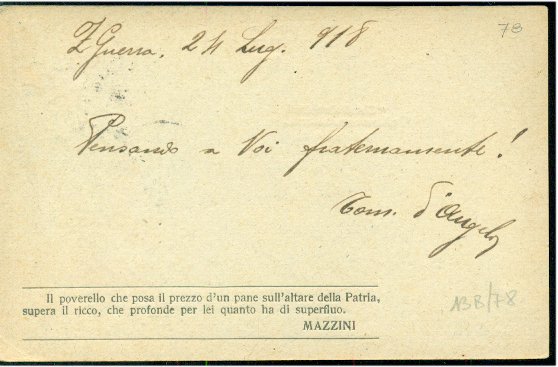 Z Guerra. 24 Lug. 918
78
Pensando a Voi fraternamente!
Tom. d'Angelo
Il poverello che posa il prezzo d'un pane sull'altare della Patria,
supera il ricco, che profonde per lei quanto ha di superfluo.
MAZZINI
13B/78